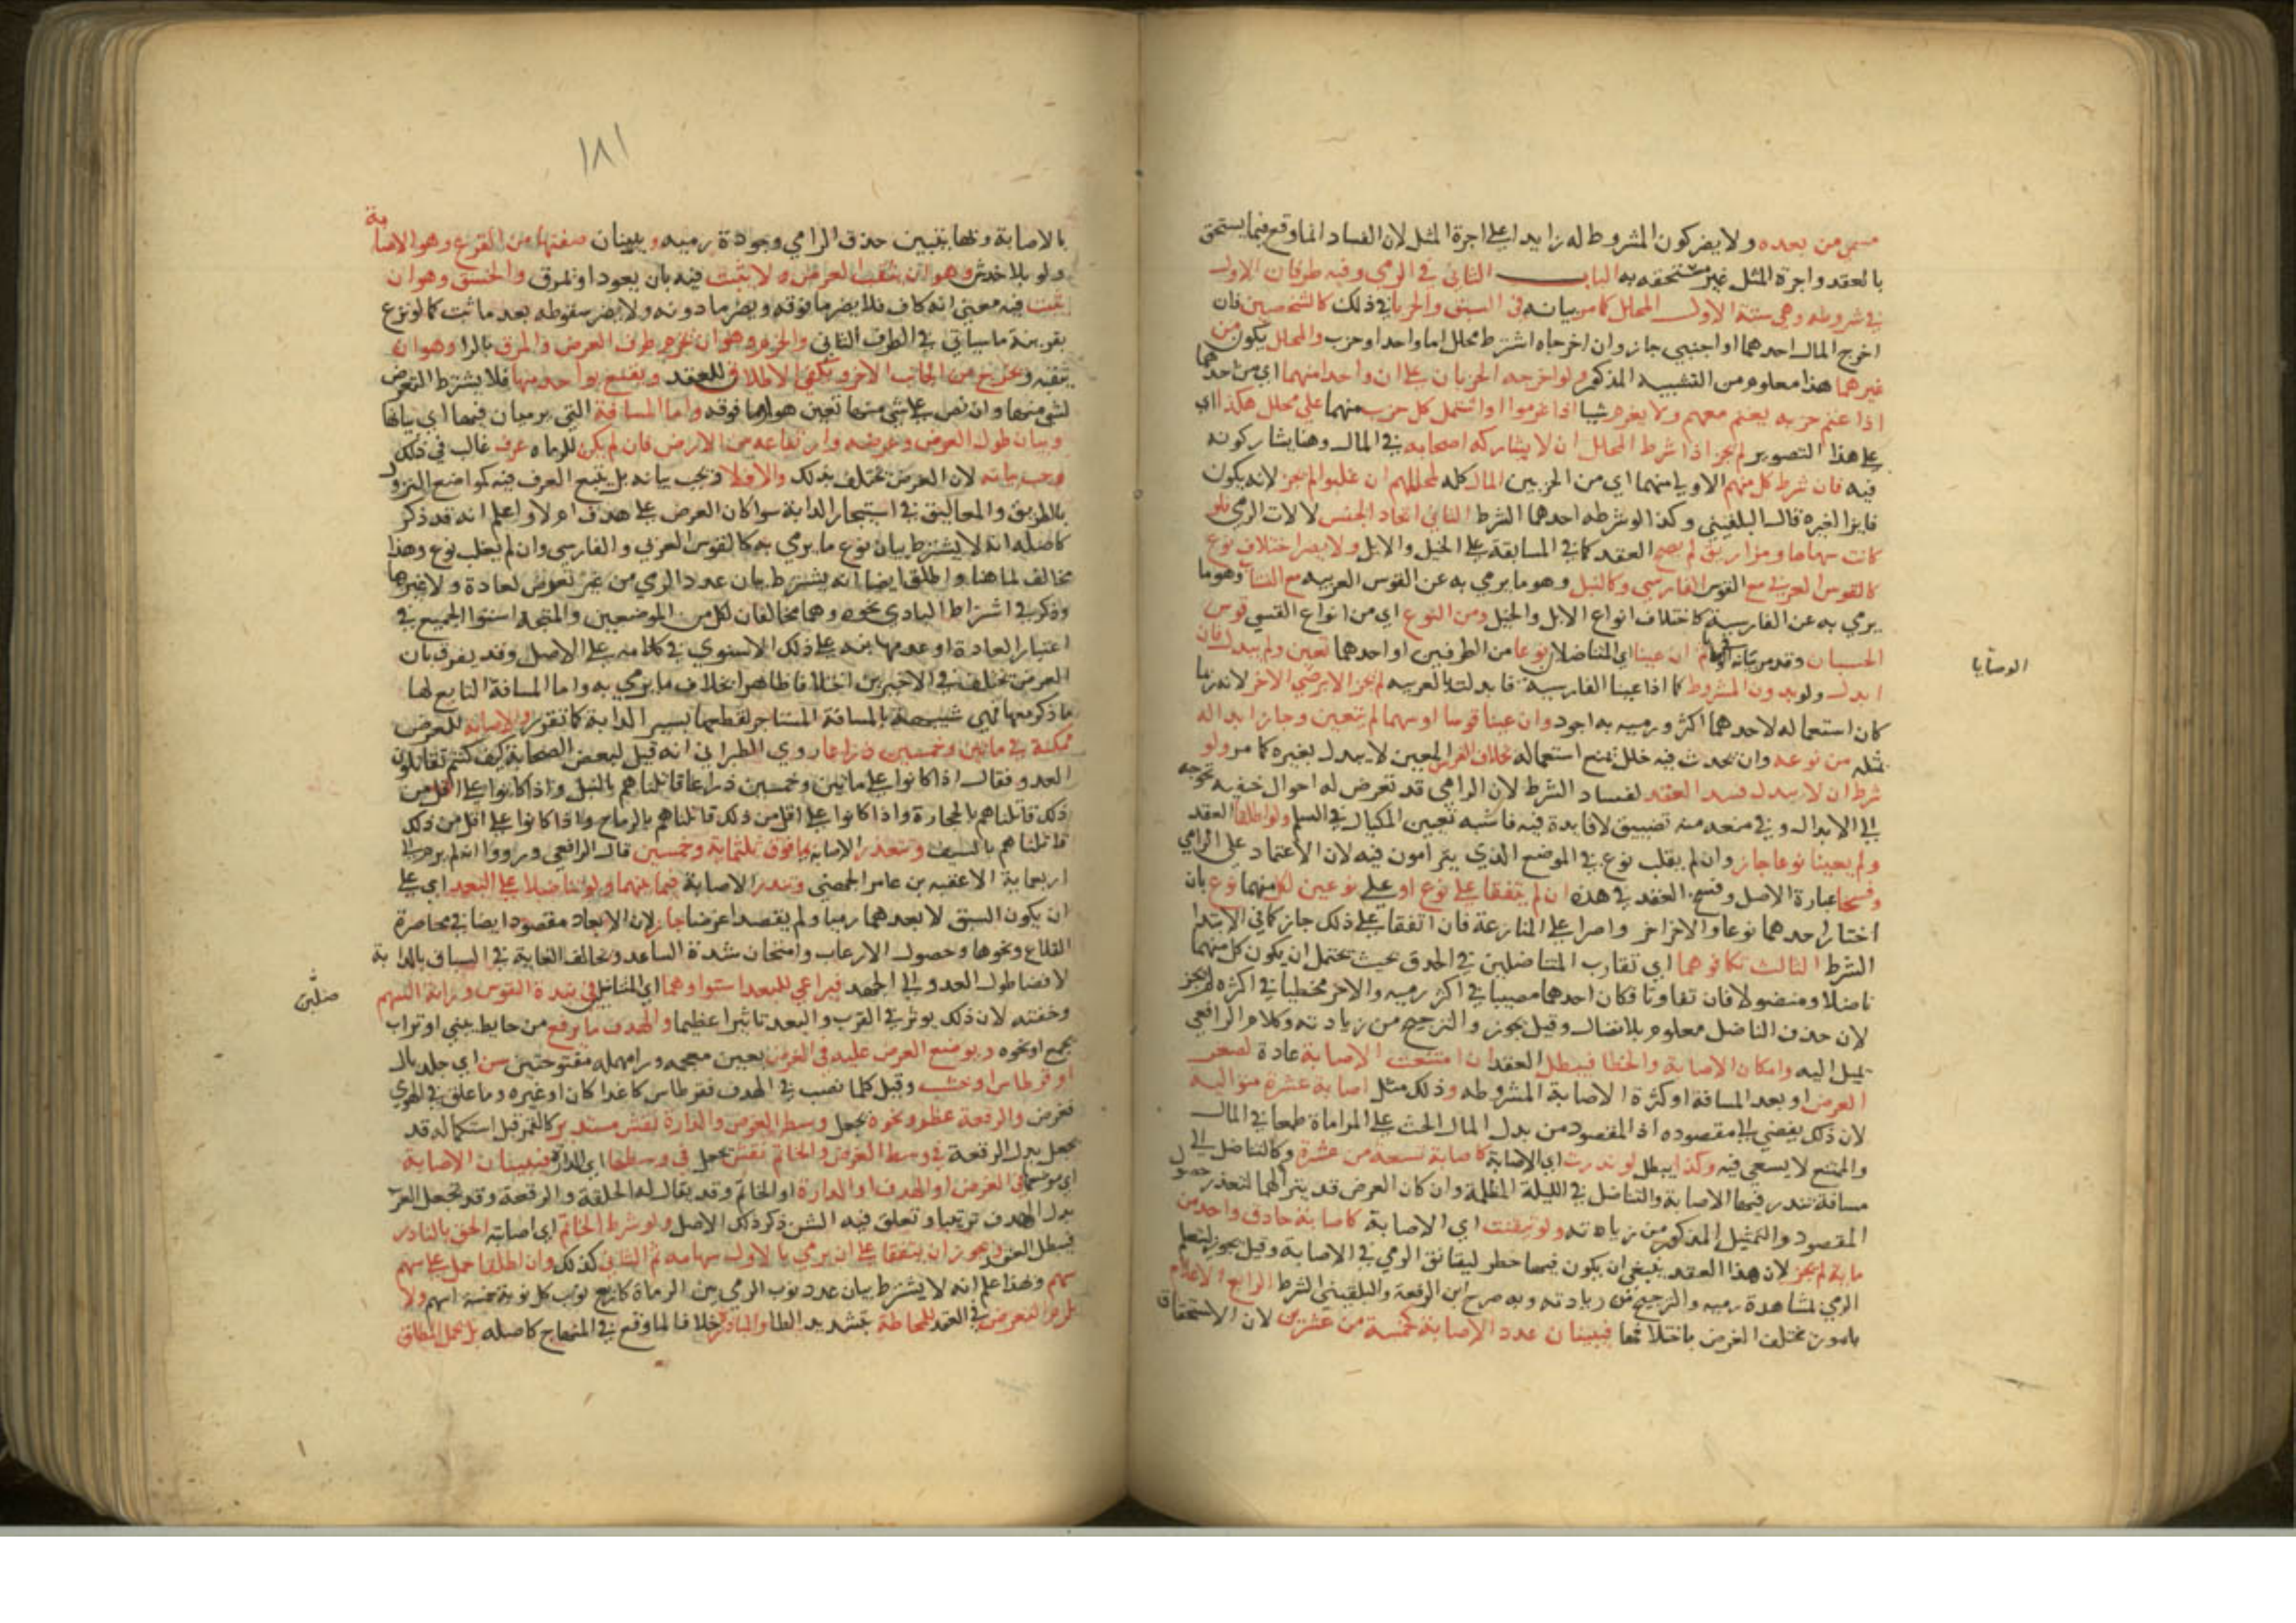 مسمى من بعده ولا يضر كون المشروط له زايدا على اجرة المثل لان الفساد انما وقع فيما يستحق
بالعقد واجرة المثل غير مستحقه به الباب الثاني في الرمي وفيه طرفان الاول
في شروطه وهي ستة الاول المحلل كما مر بيانه في السبق والحزبان في ذلك كالشخصين فان
اخرج المال احدهما او اجنبي جاز وان اخرجاه اشترط محلل اما واحد او حزب والمحلل يكون من
غيرهما هذا معلوم من التشبيه المذكور ولو اخرجه الحزبان على ان واحدا منهما اي من احدهما
اذا غنم حزبه يغنم معهم ولا يغرم شيا اذا غرموا او اشتمل كل حزب منهما على محلل هكذا اي
على هذا التصوير لم يجز اذا شرط المحلل ان لا يشاركه اصحابه في المال وهنا يشاركونه
فيه فان شرط كل منهم الاوليا منهما اي من الحزبين المال كله لمحللهم ان غلبوا لم يجز لانه يكون
فايزا لغيره قال البلقيني وكذا لو شرطه احدهما الشرط الثاني اتحاد الجنس لالات الرمي فلو
كانت سهاما ومزاريق لم يصح العقد كما في المسابقة على الخيل والابل ولا يضر اختلاف نوع
كالقوس العربي مع القوس الفارسي وكالنبل وهو ما يرمي به عن القوس العربيه مع النشاب وهو ما
يرمي به عن الفارسية كاختلاف انواع الابل والخيل ومن النوع اي من انواع القسي قوس
الحسبان وقد مر بيانه ان عينا اي المتناضلان نوعا من الطرفين او احدهما تعين ولم يبدل فان
ابدل ولو بدون المشروط كما اذا عينا الفارسية فابدلت بالعربيه لم يجز الا برضي الاخر لانه ربما
كان استعماله لاحدهما اكثر ورميه به اجود وان عينا قوسا او سهما لم يتعين وجاز ابداله
بمثله من نوعه وان لم يحدث فيه خلل يمنع استعماله بخلاف الفرس المعين لا يبدل بغيره كما مر ولو
شرط ان لا يبدل فسد العقد لفساد الشرط لان الرامي قد تعرض له احوال خفيه تحوجه
الي الابدال وفي منعه منه تضييق لا فايدة فيه فاشبه تعيين المكيال في السلم ولو اطلقا العقد
ولم يعينا نوعا جاز وان لم يغلب نوع في الموضع الذي يترامون فيه لان الاعتماد على الرامي
وفسخا عبارة الاصل وفسخ العقد في هذه ان لم يتفقا على نوع او على نوعين لكل منهما نوع بان
اختار احدهما نوعا والاخر اخر واصرا على المنازعة فان اتفقا على ذلك جاز كما في الابتدا
الشرط الثالث تكافوهما اي تقارب المتناضلين في الحذق بحيث يحتمل ان يكون كل منهما
ناضلا ومنضولا فان تفاوتا فكان احدهما مصيبا في اكثر رميه والاخر مخطيا في اكثره لم يجز
لان حذف الناضل معلوم بلا نضال وقيل يجوز والترجيح من زيادته وكلام الرافعي
يميل اليه وامكان الاصابة والخطا فيبطل العقد ان امتنعت الاصابة عادة لصغر
الغرض او بعد المسافة او كثرة الاصابة المشروطه وذلك مثل اصابة عشرة متوالية
لان ذلك يفضي الى مقصوده اذ المقصود من بدل المال الحث على المراماة طمعا في المال
والممتنع لا يسعى فيه وكذا يبطل لو ندرت اي الاصابة كاصابة تسعة من عشرة وكالتناضل الى
مسافة تندر فيها الاصابة والتناضل في الليلة المظلمة وان كان الغرض قد يترآ لهما لتعذر حصول
المقصود والتمثيل المذكور من زيادته ولو تيقنت اي الاصابة كاصابة حاذق واحد من
ماية لم يجز لان هذا العقد ينبغي ان يكون فيها خطر ليتانق الرمي في الاصابة وقيل يجوز ليتعلم
الرمي لمشاهدة رميه والترجيح من زيادته وبه صرح ابن الرفعة والبلقيني الشرط الرابع الاعلام
بامور تختلف الغرض باختلافها فيبينان عدد الاصابة كخمسة من عشرين لان الاستحقاق
الوصايا
١٨١
بالاصابة وبها يتبين حذق الرامي وجودة رميه ويبينان صفتها من القرع وهو الاصابة
ولو بلا خدش وهو ان يثقب الغرض ولا يثبت فيه بان يعود او يمرق والخسق وهو ان
يثبت فيه معنى انه كاف فلا يضر ما فوقه ويضر ما دونه ولا يضر سقوطه بعد ما ثبت كما لو نزع
بقرينة ما سياتي في الطرف الثاني والخرم وهو ان يخرم طرف الغرض والمرق بالرا وهو ان
يثقبه ويخرج من الجانب الاخر ويكفي الاطلاق للعقد ويقنع بواحد منها فلا يشترط التعرض
لشي منها وان نص على شي منها تعين هو او ما فوقه واما المسافة التي يرميان فيها اي بيانها
وبيان طول الغرض وعرضه وارتفاعه من الارض فان لم يكن للرماه عرف غالب في ذلك
وجب بيانه لان الغرض يختلف بذلك والا فلا يجب بيانه بل يتبع العرف فيه كمواضع النزول
بالطريق والمعاليق في استيجار الدابة سوا كان الغرض على هدف ام لا واعلم انه قد ذكر
كاصله انه لا يشترط بيان نوع ما يرمي به كالقوس العربي والفارسي وان لم يغلب نوع وهذا
مخالف لما هنا واطلق ايضا انه يشترط بيان عدد الرمي من غير تعرض لعادة ولا غيرها
وذكر في اشتراط البادي نحوه وهما مخالفان لكل من الموضعين والمتجه استوا الجميع في
اعتبار العادة او عدمها نبه على ذلك الاسنوي في كلامه على الاصل وقد يفرق بان
الغرض يختلف في الاخيرين اختلافا ظاهرا بخلاف ما يرمي به واما المسافة التابع لها
ما ذكر معها فهي شبيهة بالمسافة المستاجر لقطعها بسير الدابة كما تقرر والاصابة للغرض
ممكنة في ماتين وخمسين ذراعا روي الطبراني انه قيل لبعض الصحابة كيف كنتم تقاتلون
العدو فقال اذا كانوا على ماتين وخمسين ذراعا قاتلناهم بالنبل واذا كانوا على اقل من
ذلك قاتلناهم بالحجارة واذا كانوا على اقل من ذلك قاتلناهم بالرماح واذا كانوا على اقل من ذلك
قاتلناهم بالسيف وتتعذر الاصابة بما فوق ثلثماية وخمسين قال الرافعي ورووا انه لم يرم الى
اربعماية الا عقبه بن عامر الجهني وتندر الاصابة فيما بينهما ولو تناضلا على البعد اي على
ان يكون السبق لابعدهما رميا ولم يقصدا غرضا جاز لان الابعاد مقصود ايضا في محاصرة
القلاع ونحوها وحصول الارعاب وامتحان شدة الساعد وتخالف الغاية في السباق بالدابة
لافضا طول العدو الى الجهد فيراعي للبعد استواوهما اي المتناضلين في شدة القوس ورزانة السهم
وخفته لان ذلك يوثر في القرب والبعد تاثيرا عظيما والهدف ما يرفع من حايط يبني او تراب
يجمع او نحوه ويوضع الغرض عليه في الغرض بغين معجمه ورا مهمله مفتوحتين شن اي جلد بال
او قرطاس او خشب وقيل كلما نصب في الهدف فقرطاس كاغدا كان او غيره وما علق في الهوي
فغرض والرقعة عظم ونحوه يجعل وسط الغرض والدارة نقش مستدير كالقمر قبل استكماله قد
يجعل بدل الرقعة في وسط الغرض والخاتم نقش يجعل في وسطها اي الدارة فيبينان الاصابة
اي موضعها في الغرض او الهدف او الدارة او الخاتم وقد يقال له الحلقة والرقعة وقد تجعل العرب
بدل الهدف ترسا وتعلق فيه الشن ذكر ذلك الاصل ولو شرط الخاتم اي اصابته الحق بالنادر
فيبطل العقد ويجوز ان يتفقا على ان يرمي بالاول سهامه ثم الثاني كذلك وان اطلقا حمل على سهم
سهم وبهذا علم انه لا يشترط بيان عدد نوب الرمي بين الرماة كاربع نوب كل نوبة خمسة اسهم ولا
يلزم التعرض في العقد للمحاطة بتشديد الطا والمبادرة خلافا لما وقع في المنهاج كاصله بل يحمل المطلق
ضلين